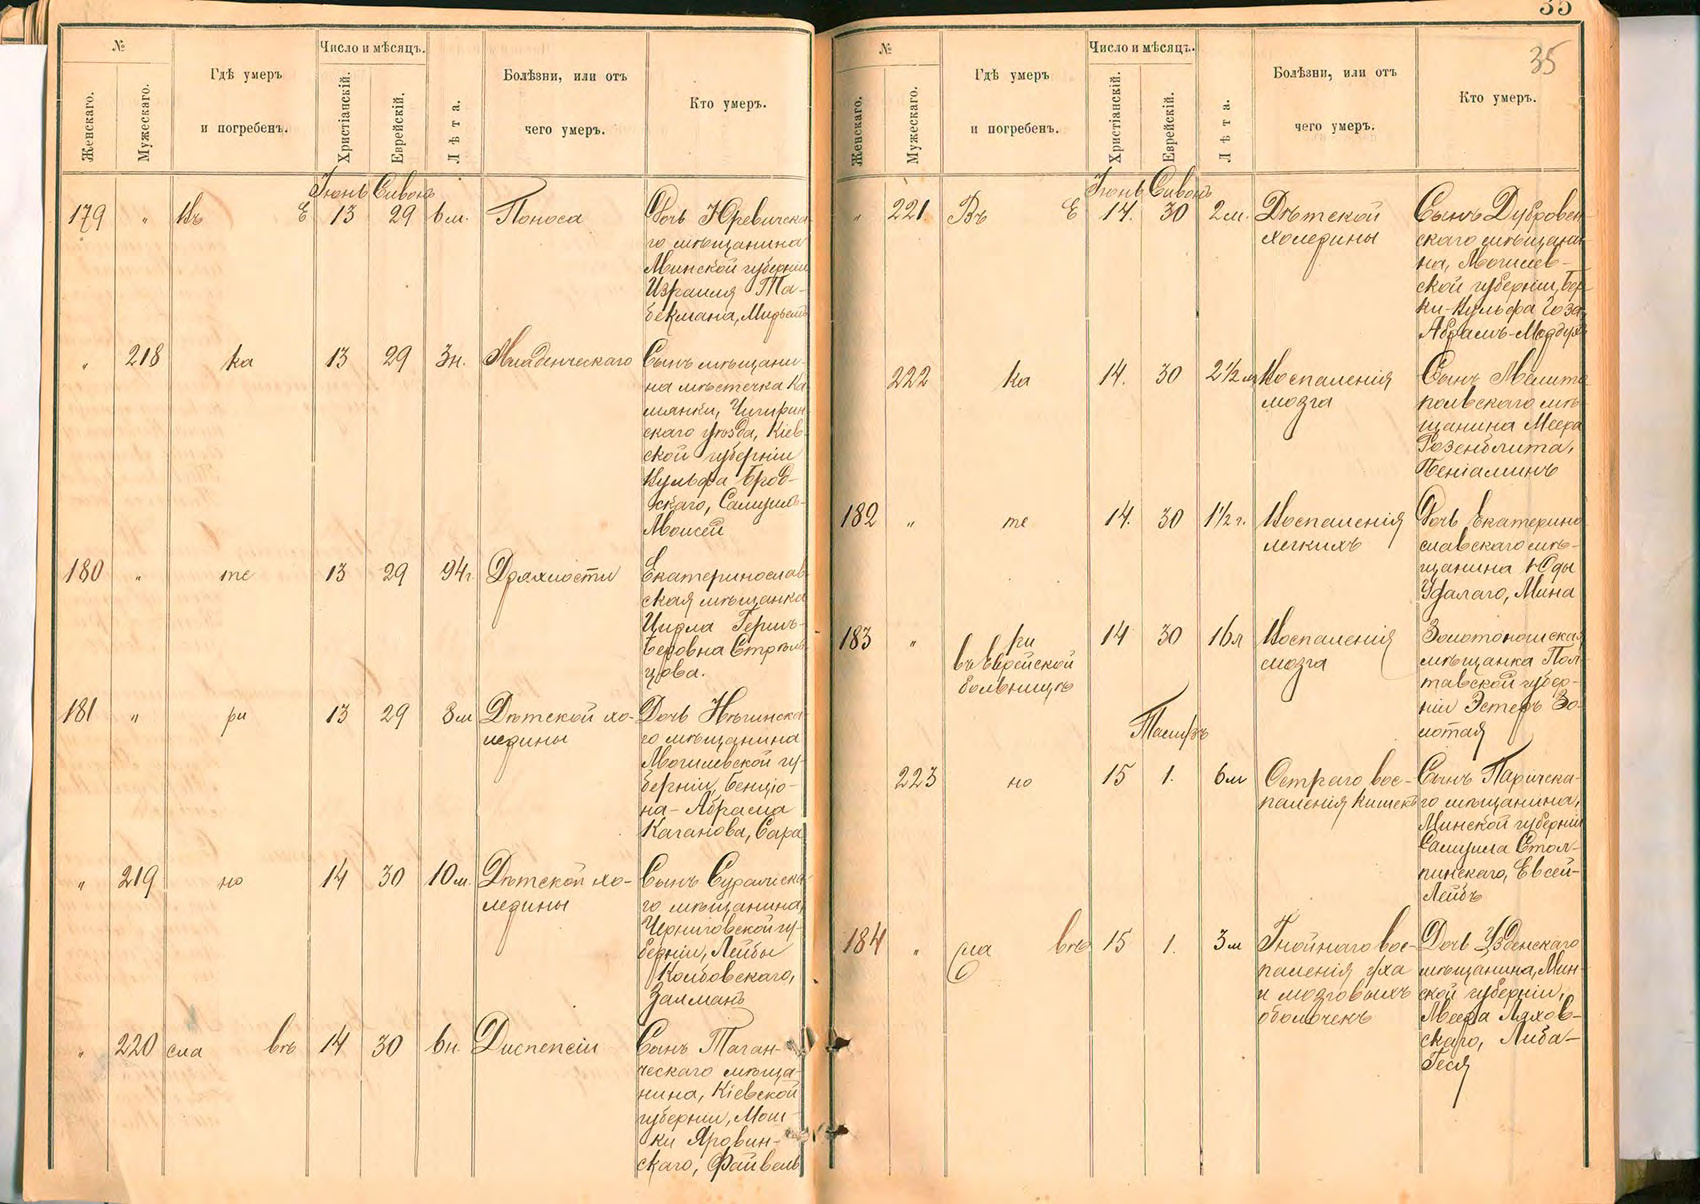 №
Число и мѣсяцъ.
Женскаго.
Мужескаго.
Гдѣ умеръ
и погребенъ.
Христіанскій.
Еврейскій.
Лѣта.
Болѣзни, или отъ
чего умеръ.
Кто умеръ.
Іюнь Сивонъ
179 " Въ Е 13 29 6 м. Поноса Дочь Юревичска-
го мѣщанина
Минской губерніи
Израиля Та-
бекмана,
" 218 ка 13 29 3 н. Младенческаго Сынъ мѣщани-
на мѣстечка Ка
мянки, Чигирин-
скаго уѣзда, Кіев-
ской губерніи
Вульфа Брод-
скаго, Самуилъ-
Моисей
180 " те 13 29 94 г. Дряхлости Екатеринослав-
ская мѣщанка
Цирла Герш-
Беровна Стрѣль
цова.
181 " ри 13 29 8 м Дѣтской хо-
лерины
Дочь Нѣгинска-
го мѣщанина
Могилевской гу-
берніи, Бенціо-
на-Абрама
Каганова, Сара
" 219 но 14 30 10 м. Дѣтской хо-
лерины
Сынъ Суражска
го мѣщанина,
Черниговской гу-
берніи, Лейбы
Койбовскаго,
Залманъ
" 220 сла вѣ 14 30 6 н. Диспепсіи Сынъ Таган-
ческаго мѣща-
нина, Кіевской
губерніи, Мош-
ки Яровин-
скаго, Файвель
35
35
№
Число и мѣсяцъ.
Женскаго.
Мужескаго.
Гдѣ умеръ
и погребенъ.
Христіанскій.
Еврейскій.
Лѣта.
Болѣзни, или отъ
чего умеръ.
Кто умеръ.
Іюнь Сивонъ
" 221. Въ Е 14. 30 2 м. Дѣтской
холерины
Сынъ Дубровен-
скаго мѣщани-
на, Могилев-
ской губерніи, Бер
ки-Вульфа
Абрамъ-Мордухъ
222 ка 14. 30 2½ м Воспаленія
мозга
Сынъ Мелито
польскаго мѣ-
щанина Меера
Розенблита,
Беніаминъ
182 " те 14. 30 1½ г. Воспаленія
легкихъ
Дочь Екатерино
славскаго мѣ-
щанина Юды
Удалаго, Мина
183 " ри
въ Еврейской
больницѣ
14 30 16 л Воспаленія
мозга
Золотоношская
мѣщанка Пол-
тавской губер-
ніи Эстеръ Зо-
лотая
Тамузъ
223 но 15 1. 6 м Остраго вос-
паленія кишекъ
Сынъ Паричска-
го мѣщанина,
Минской губерніи
Самуила Стол-
пинскаго, Евсей-
Лейбъ
184 " сла вѣ 15 1. 3 м Гнойнаго вос-
паленія уха
и мозговыхъ
оболочекъ
Дочь Узденскаго
мѣщанина, Мин-
ской губерніи,
Меера Ляхов-
скаго, Либа-
Геся